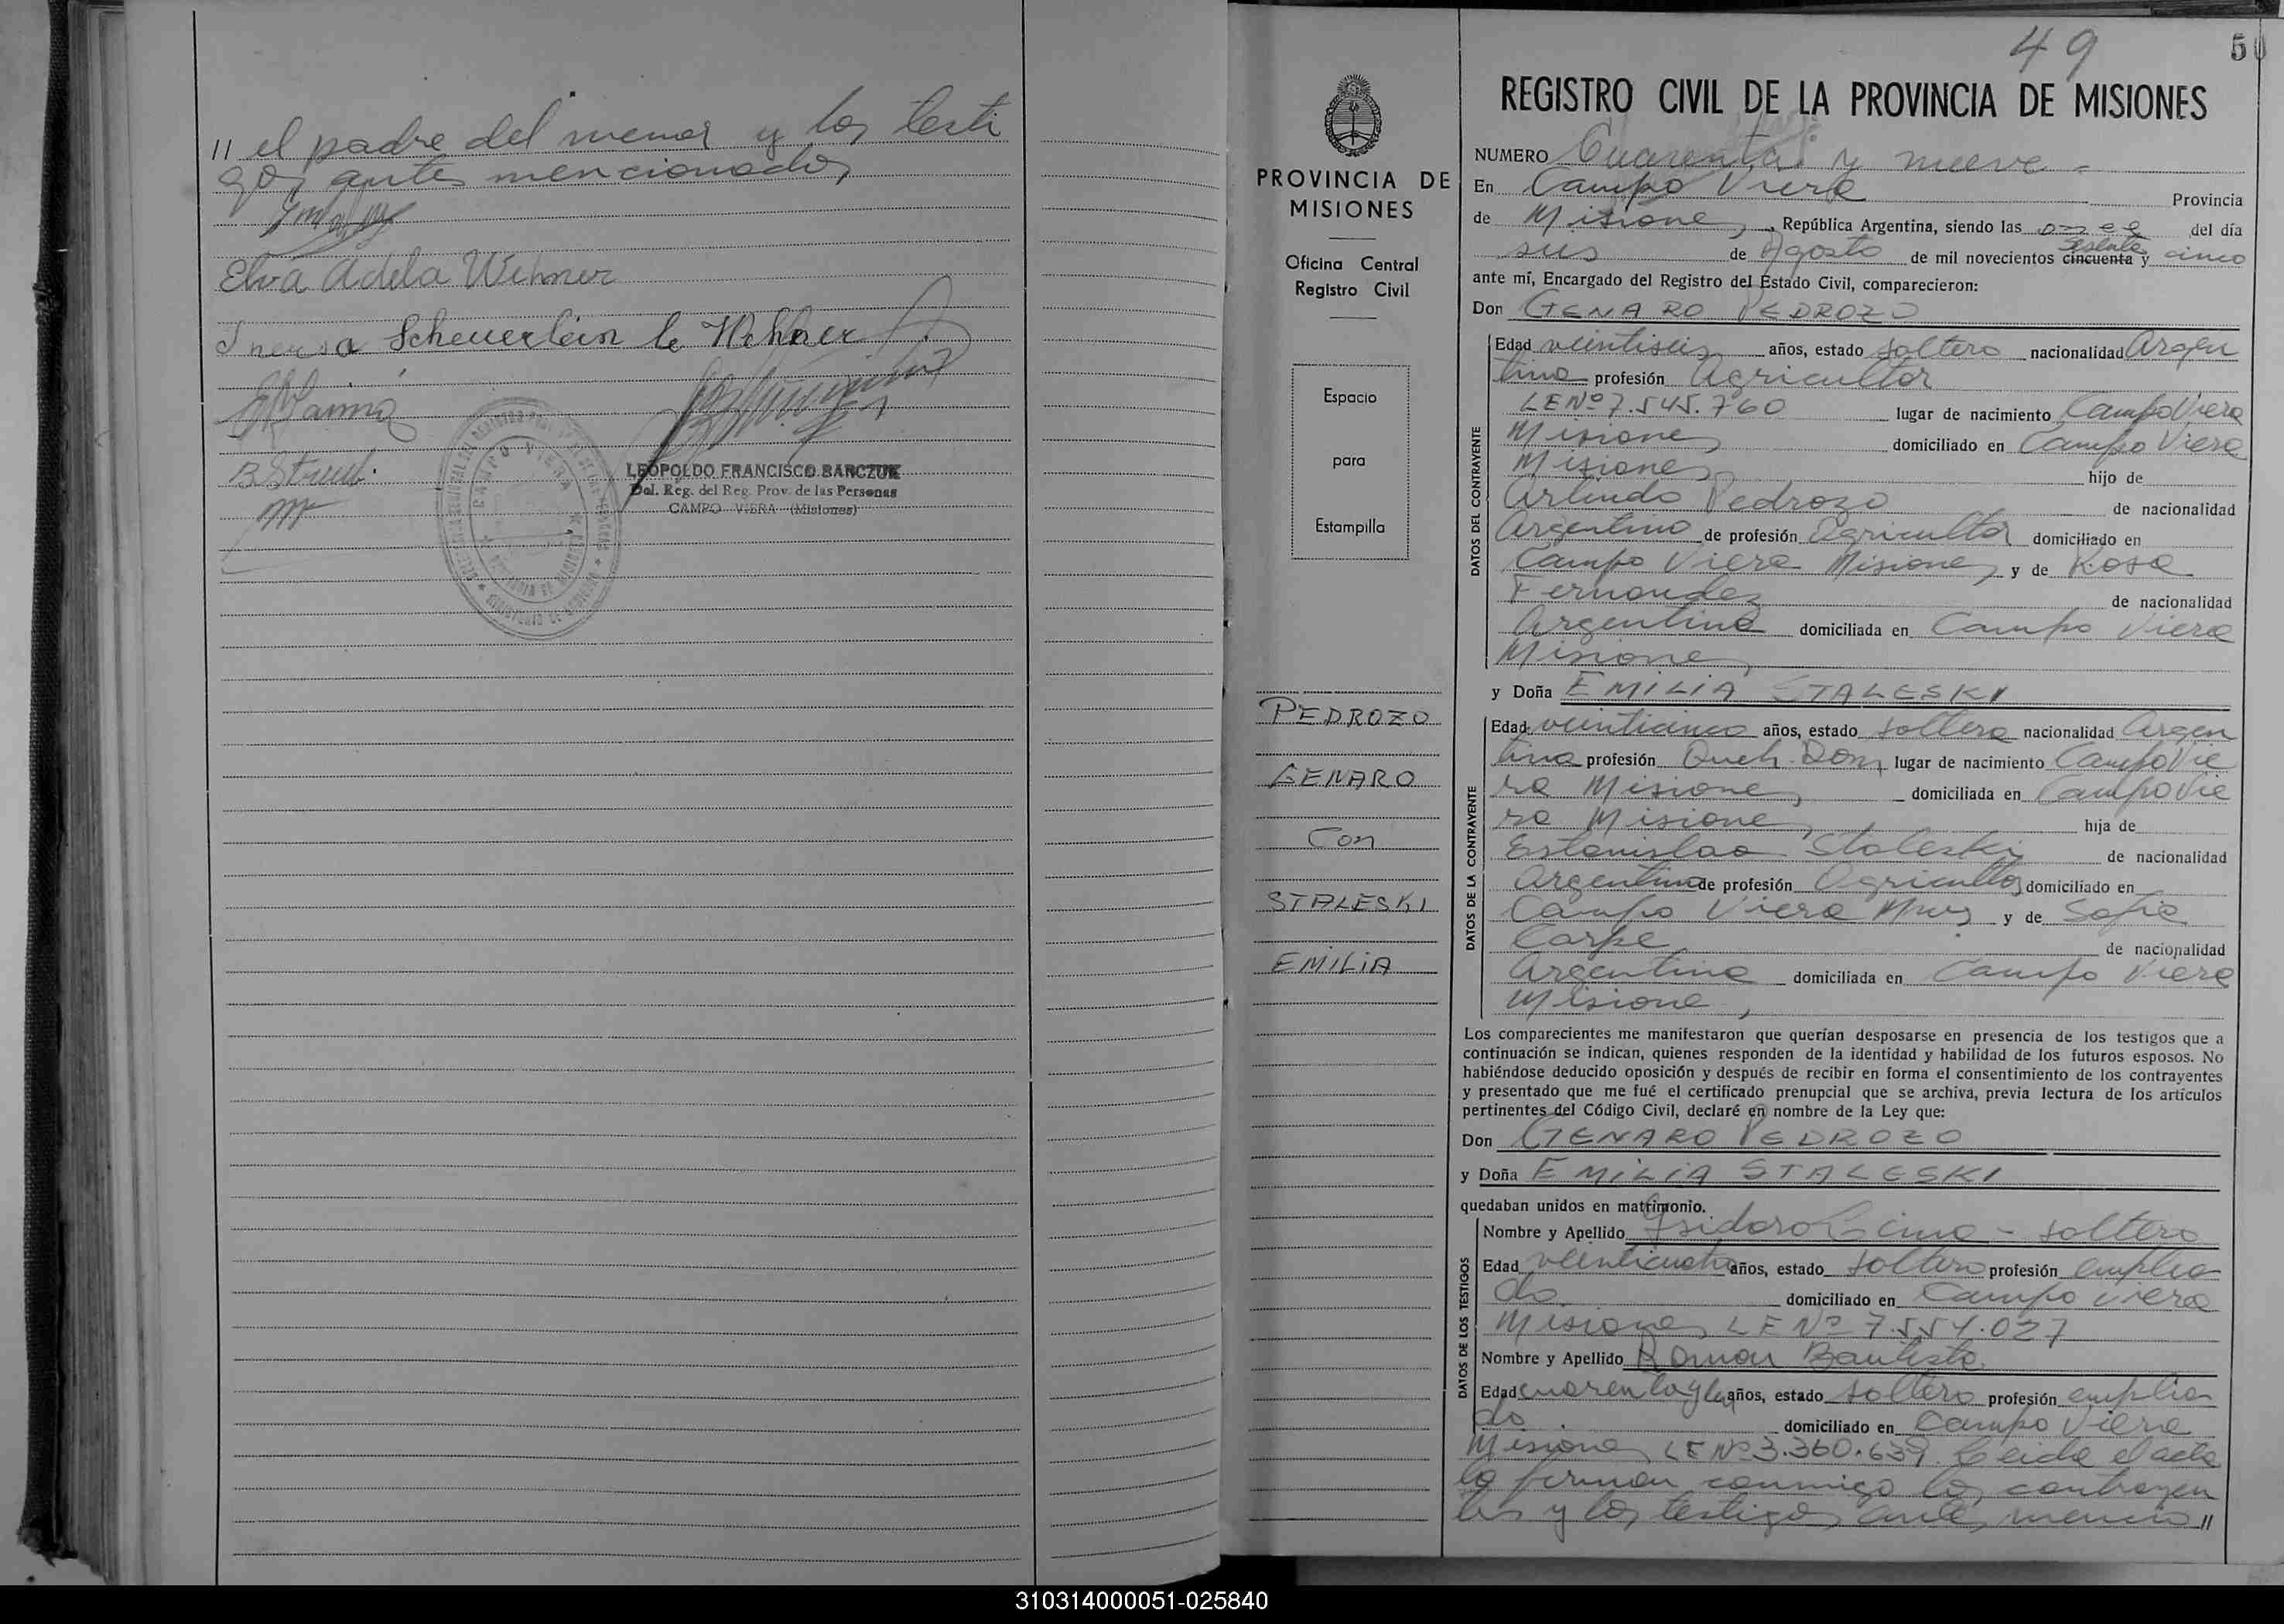 // el padre del menor y los testi
gos antes mencionados
Elva Adela Wehner
Scheuerlein de Wehner
LEOPOLDO FRANCISCO BARCZUK
Del. Reg. del Reg. Prov. de las Personas
CAMPO VIERA (Misiones)
PROVINCIA DE
MISIONES
Oficina Central
Registro Civil
Espacio
para
Estampilla
PEDROZO
GENARO
Con
STALESKI
EMILIA
49
50
REGISTRO CIVIL DE LA PROVINCIA DE MISIONES
NUMERO Cuarenta y nueve -
En Campo Viera Provincia
de Misiones, República Argentina, siendo las once del día
seis de Agosto de mil novecientos cincuenta sesenta y cinco
ante mí, Encargado del Registro del Estado Civil, comparecieron:
Don GENARO PEDROZO
DATOS DEL CONTRAYENTE
Edad veintiseis años, estado soltero nacionalidad Argen
tina profesión Agricultor
LENº 7.545.760 lugar de nacimiento Campo Viera
Misiones domiciliado en Campo Viera
Misiones hijo de
Arlindo Pedrozo de nacionalidad
Argentino de profesión Agricultor domiciliado en
Campo Viera Misiones y de Rosa
Fernandez de nacionalidad
Argentina domiciliada en Campo Viera
Misiones
y Doña EMILIA STALESKI
DATOS DE LA CONTRAYENTE
Edad veinticinco años, estado soltera nacionalidad Argen
tina profesión Queh. Dom, lugar de nacimiento Campo Vie
ra Misiones domiciliada en Campo Vie
ra Misiones hija de
Estanislao Staleski de nacionalidad
Argentino de profesión Agricultor domiciliado en
Campo Viera Mnes y de Sofia
Carpe de nacionalidad
Argentina domiciliada en Campo Viera
Misiones
Los comparecientes me manifestaron que querían desposarse en presencia de los testigos que a
continuación se indican, quienes responden de la identidad y habilidad de los futuros esposos. No
habiéndose deducido oposición y después de recibir en forma el consentimiento de los contrayentes
y presentado que me fué el certificado prenupcial que se archiva, previa lectura de los artículos
pertinentes del Código Civil, declaré en nombre de la Ley que:
Don GENARO PEDROZO
y Doña EMILIA STALESKI
quedaban unidos en matrimonio.
DATOS DE LOS TESTIGOS
Nombre y Apellido Isidoro - soltero
Edad años, estado soltero profesión emplea
do domiciliado en Campo Viera
Misiones LE Nº 7.554.027
Nombre y Apellido Ramon Bautista
Edad cuarenta y años, estado soltero profesión emplea
do domiciliado en Campo Viera
Misiones LE Nº 3.360.639. Leida el acta
la firman conmigo los contrayen
tes y los testigos antes mencio //
310314000051-025840